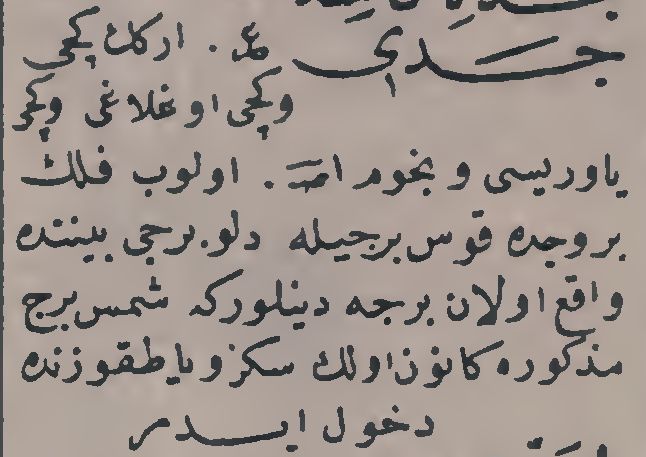 جدى ع . اركك كچى
وكچى اوغلاغى وكچى
ياوريسى و نجوم . اولوب فلك
بروجده قوس برجيله دلو برجى بيننده
واقع اولان برجه دينلوركه شمس برج
مذكوره كانون اولك سكز ويا طقوزنده
دخول ايدر